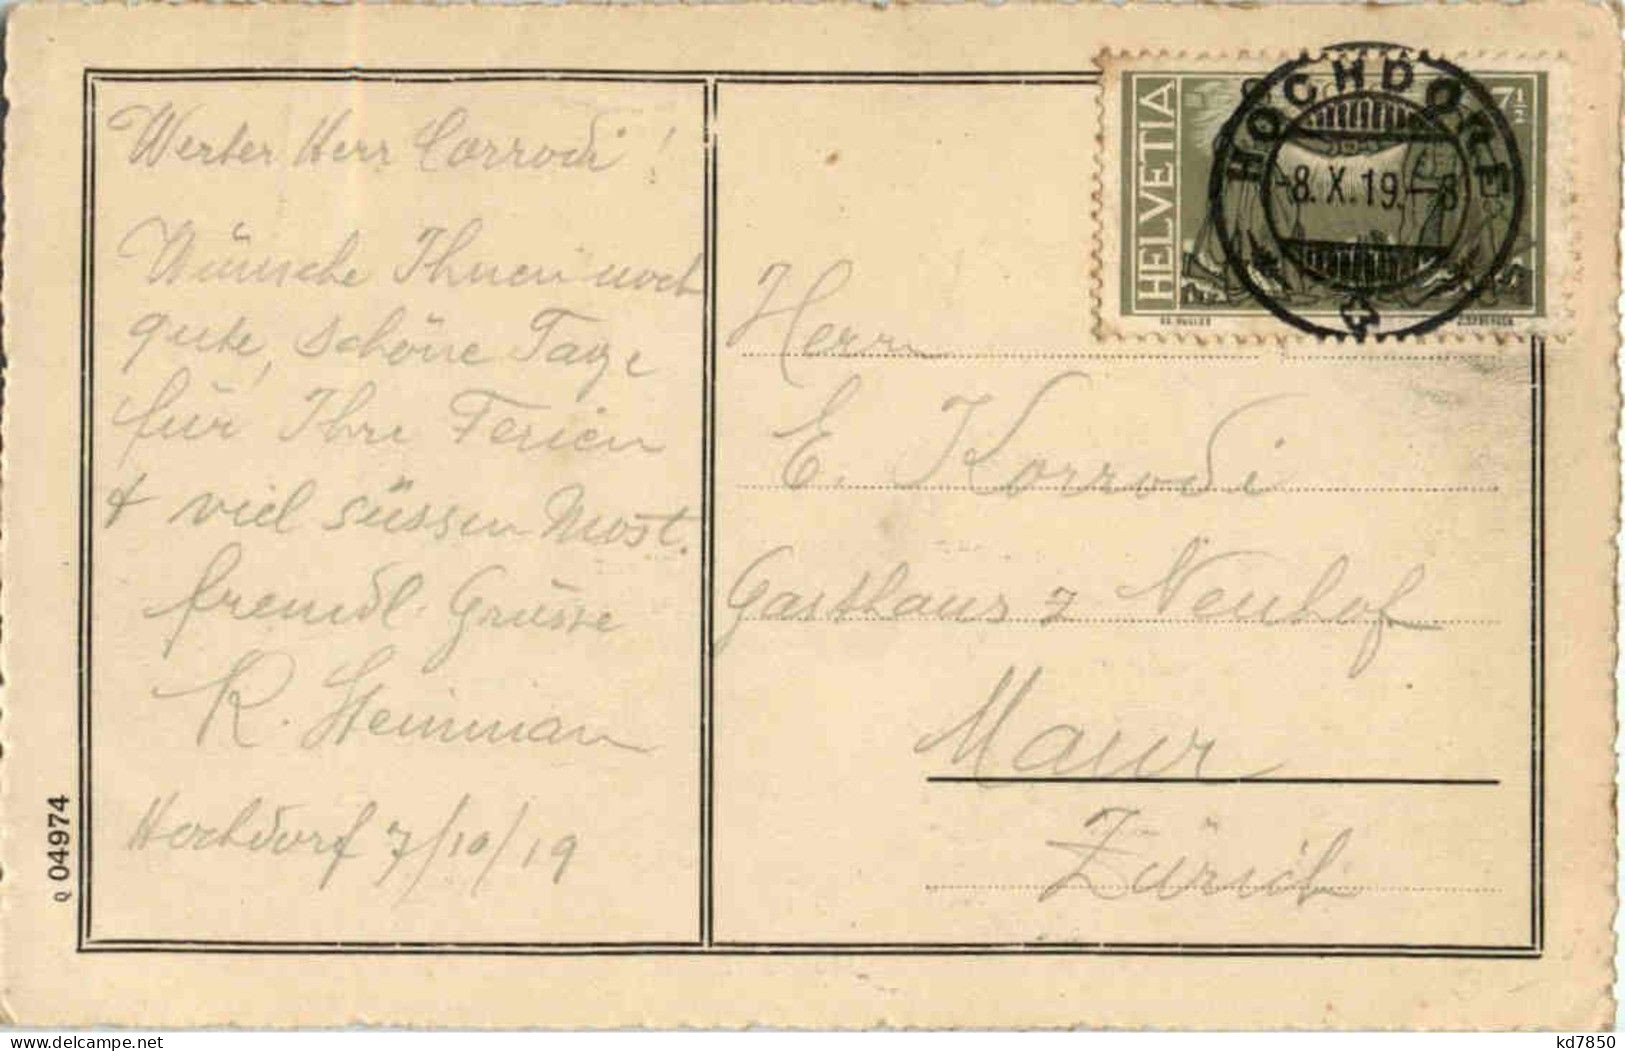 Werter Herr Corrodi!
Wünsche Ihnen noch
gute, schöne Tage
für Ihre Ferien
+ viel süssen Most.
freundl. Grüsse
R. Steinman
Hochdorf 7/10/19
Q 04974
HELVETIA
7½
HOCHDORF
-8.X.19.-8
Herrn
E. Korrodi
Gasthaus z Neuhof
Maur
Zürich
delcampe.net
kd7850